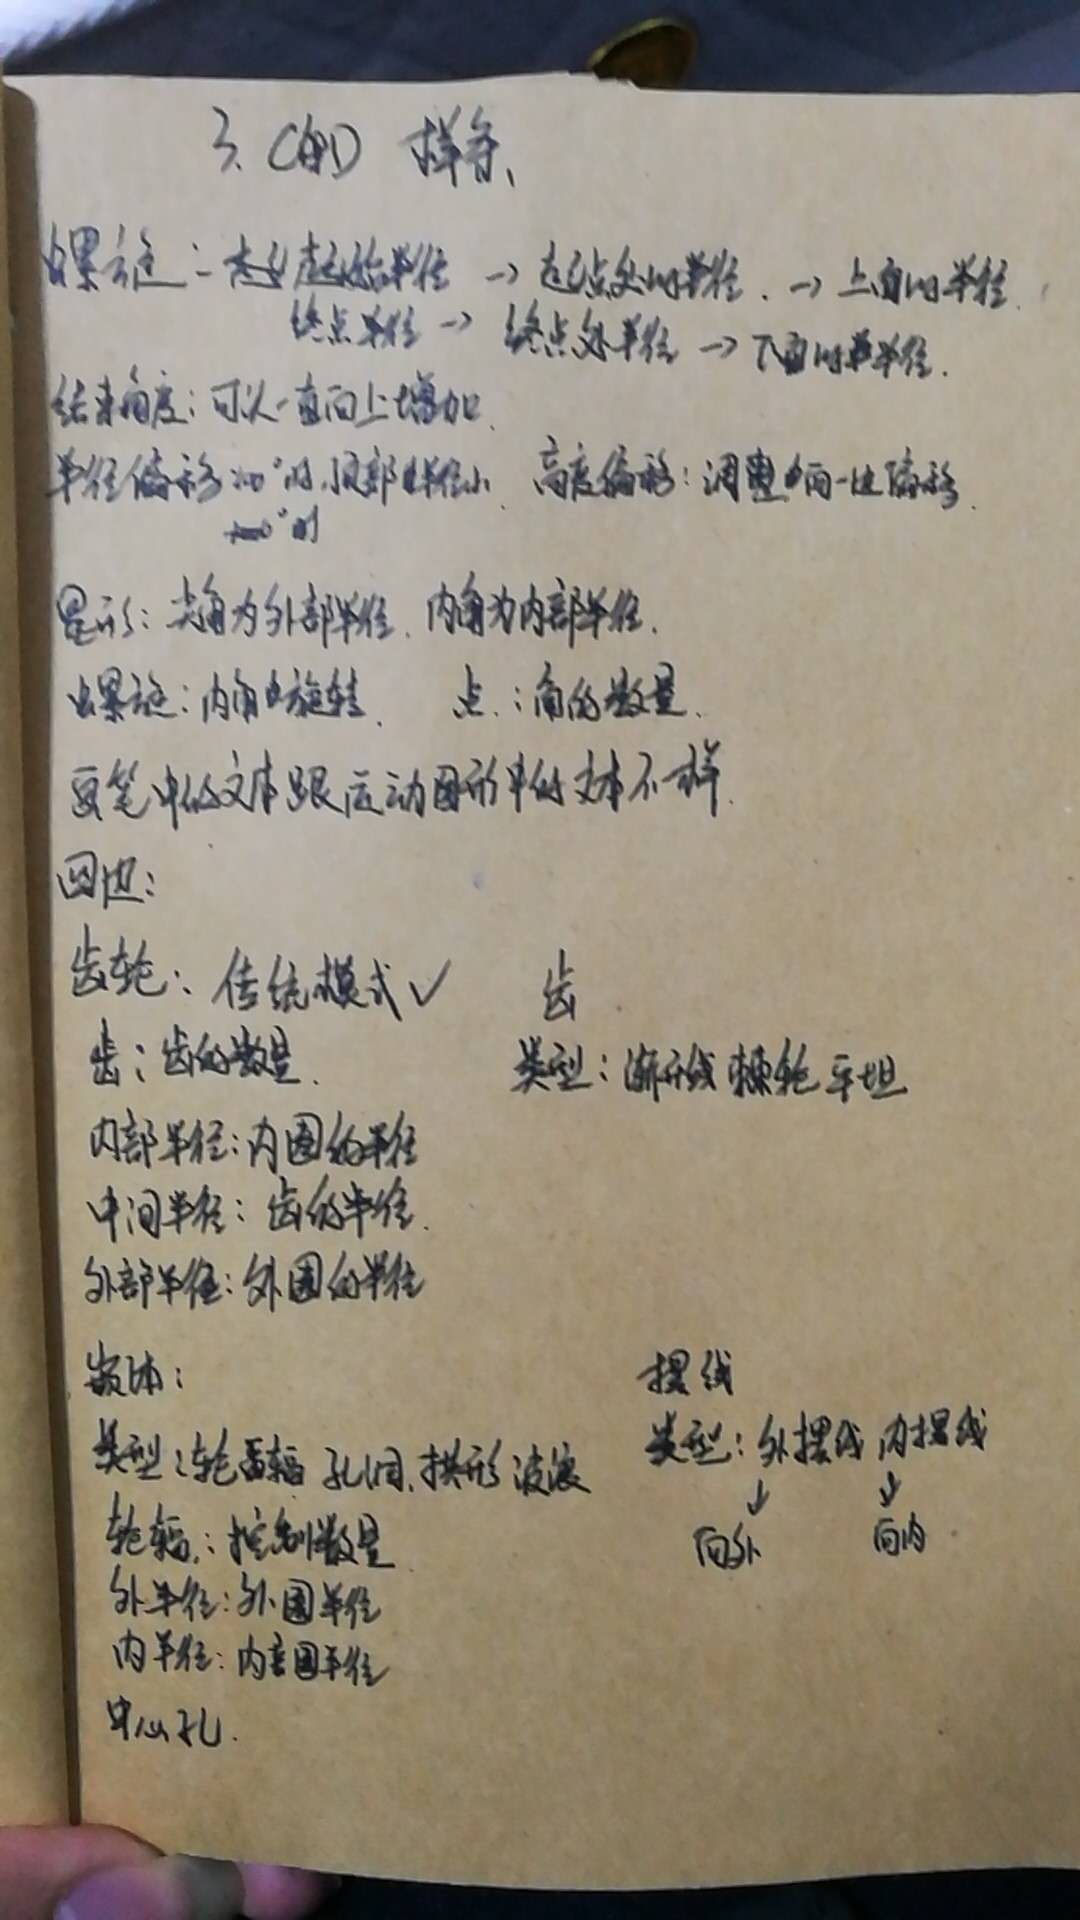 3. C4D 样条
螺旋：起始半径 → 起点处的半径. → 上面的半径.
终点半径 → 终点处半径 → 下面的半径.
结束角度：可以一直向上增加.
半径偏移 时,顶部半径小. 高度偏移：调整 一边偏移.
星形：尖角为外部半径. 内角为内部半径.
螺旋：内角 旋转. 点.：角的数量.
画笔中的文本跟运动图形中的文本不一样.
四边：
齿轮：传统模式✓ 齿
齿：齿的数量. 类型：渐开线 棘轮 平坦
内部半径：内圈的半径
中间半径：齿的半径.
外部半径：外圈的半径
嵌体： 摆线
类型：轮辐 孔洞. 拱形 波浪 类型：外摆线 内摆线
↓ ↓
轮辐.：控制数量 向外 向内
外半径：外圈半径
内半径：内圈半径
中心孔.